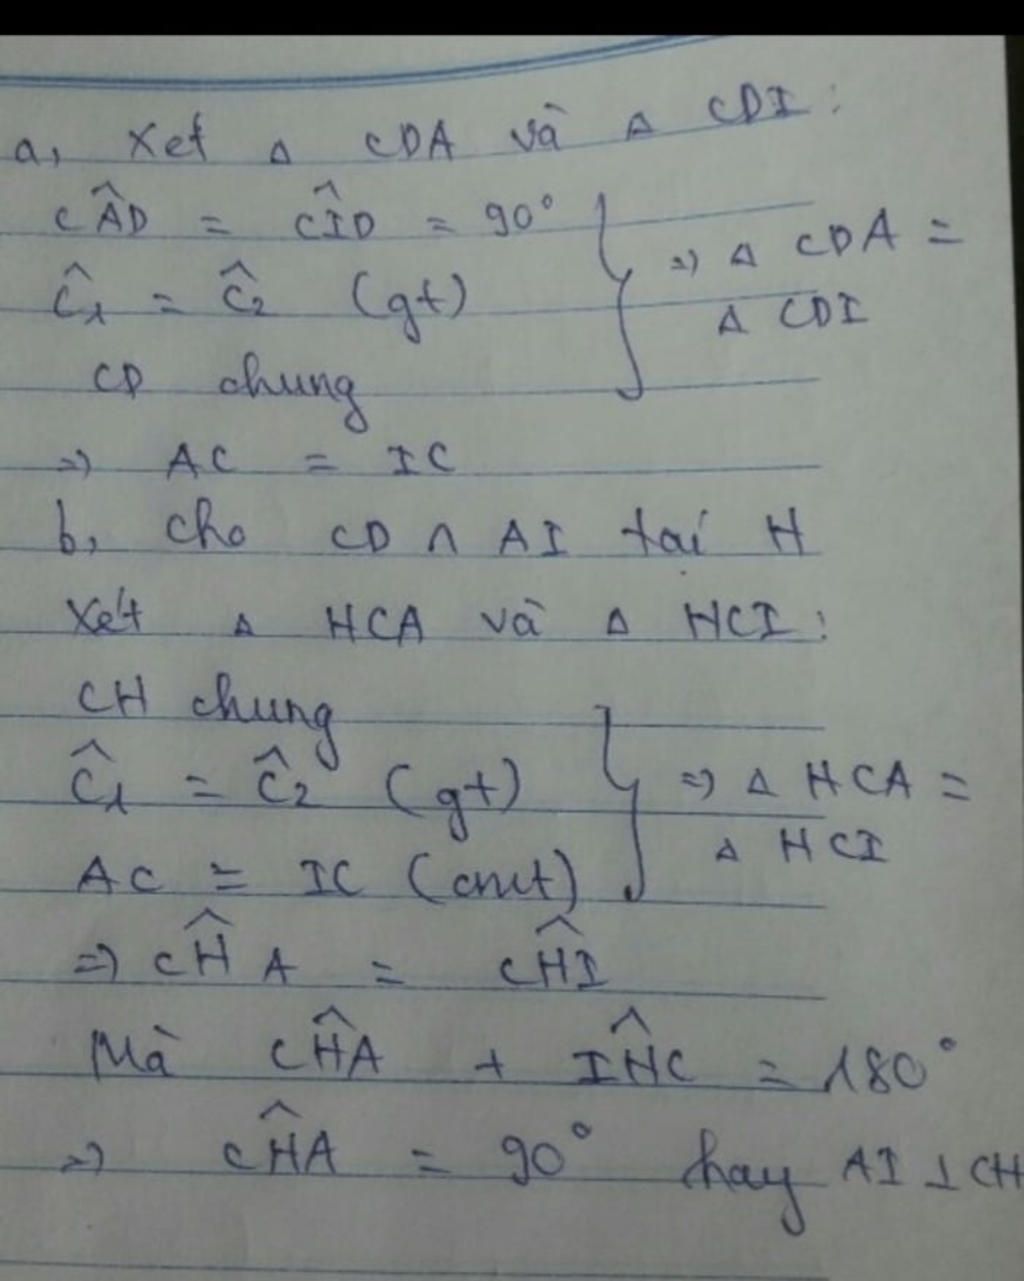 a, Xet △ CDA và △ CDI :
CÂD = CÎD = 90°
Ĉ₁ = Ĉ₂ (gt)
CD chung
⇒ △ CDA =
△ CDI
⇒ AC = IC
b, Cho CD ∩ AI tại H
Xét △ HCA và △ HCI :
CH chung
Ĉ₁ = Ĉ₂ (gt)
AC = IC (cmt)
⇒ △ HCA =
△ HCI
⇒ CĤA = CĤI
Mà CĤA + IĤC = 180°
⇒ CĤA = 90° hay AI ⊥ CH